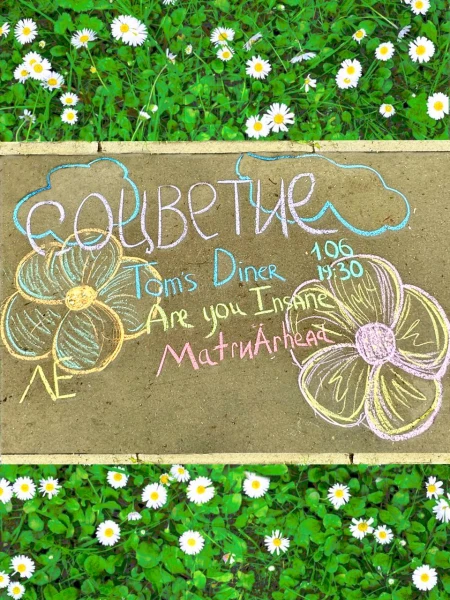 соцветие
1.06
19:30
Tom's Diner
Are you Insane
МатгиАрнеад
ЛЕ